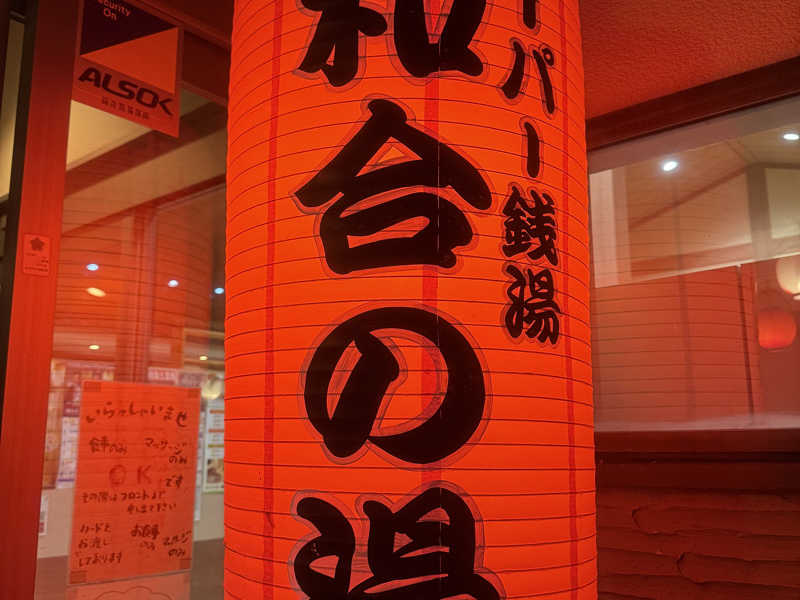 ーパー銭湯
和台の湯
Security
On
ALSOK
いらっしゃいませ
食事のみ マッサージ
のみ
OKです
その際はフロントまで
お申し出下さい
カードを
お渡し
しております
お食事
のみ
マッサージ
のみ